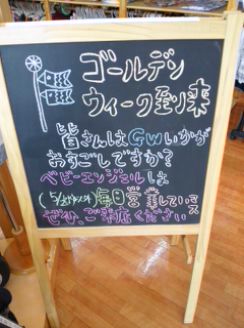 ゴールデン
ウィーク到来
皆さんはGWいかが
おすごしですか?
ベビーエンジェルは
毎日営業しています
ぜひ、ご来店ください